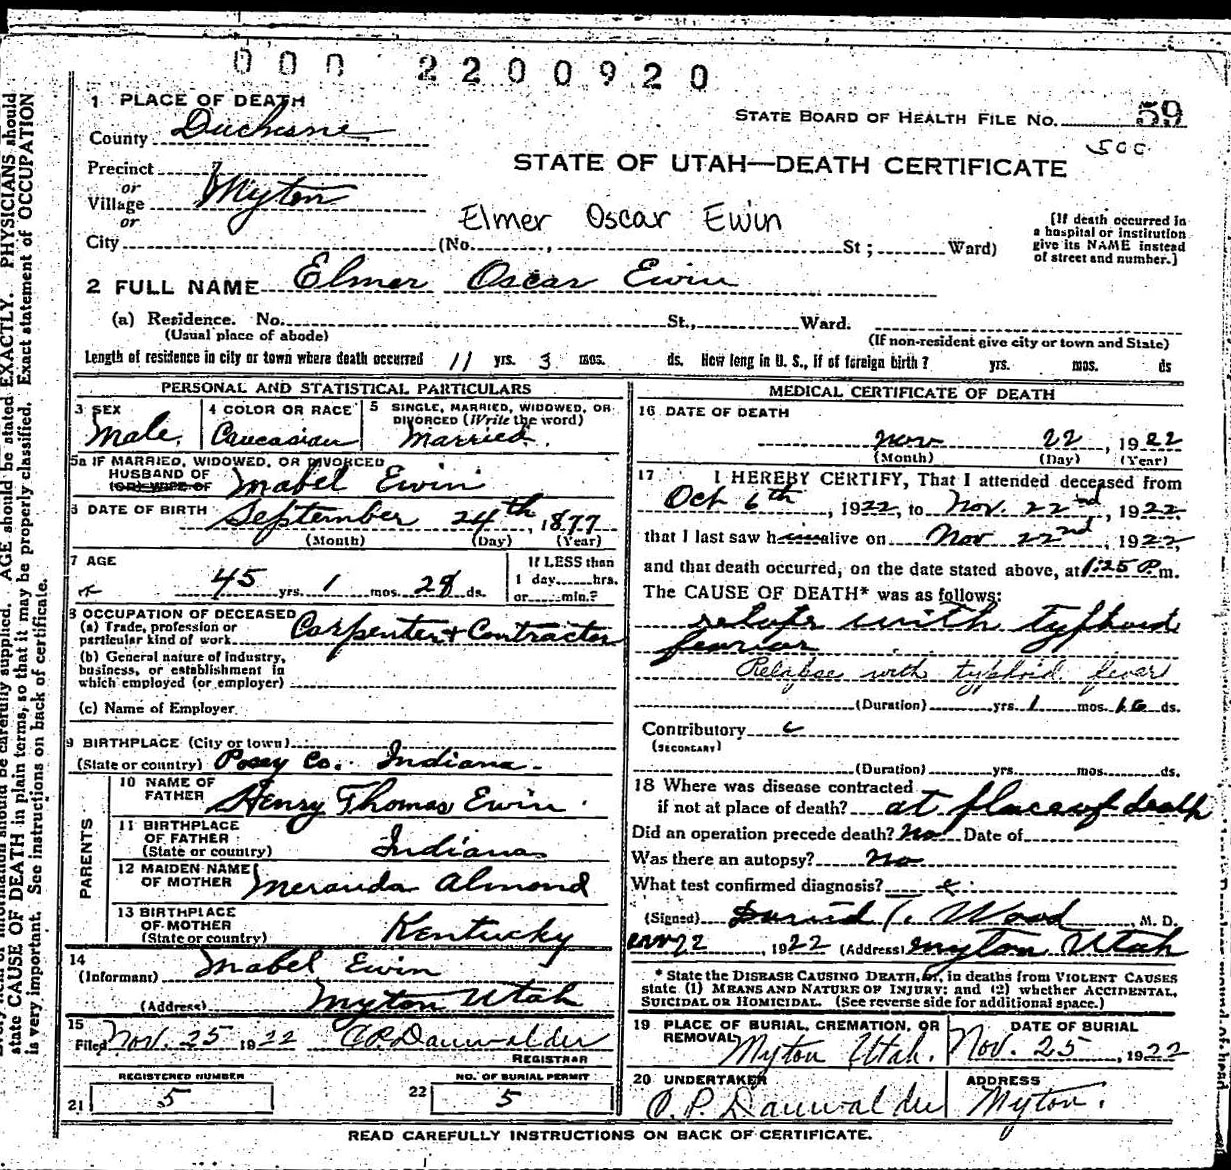 000 2200920
1 PLACE OF DEATH
STATE BOARD OF HEALTH FILE NO. 59
County Duchesne
500
STATE OF UTAH—DEATH CERTIFICATE
Precinct
or
Village Myton
or
Elmer Oscar Ewin
City (No. , St; Ward)
[If death occurred in
a hospital or institution
give its NAME instead
of street and number.]
2 FULL NAME Elmer Oscar Ewin
(a) Residence. No. St., Ward.
(Usual place of abode) (If non-resident give city or town and State)
Length of residence in city or town where death occurred 11 yrs. 3 mos. ds. How long in U. S., if of foreign birth? yrs. mos. ds
PERSONAL AND STATISTICAL PARTICULARS
3 SEX 4 COLOR OR RACE 5 SINGLE, MARRIED, WIDOWED, OR
DIVORCED (Write the word)
Male Caucasian Married.
5a IF MARRIED, WIDOWED, OR DIVORCED
HUSBAND OF
(OR) WIFE OF Mabel Ewin
6 DATE OF BIRTH September 24th, 1877
(Month) (Day) (Year)
7 AGE If LESS than
1 day hrs.
45 yrs. 1 mos. 28 ds. or min.?
8 OCCUPATION OF DECEASED
(a) Trade, profession or
particular kind of work Carpenter & Contractor
(b) General nature of industry,
business, or establishment in
which employed (or employer)
(c) Name of Employer
9 BIRTHPLACE (City or town)
(State or country) Posey Co. Indiana.
PARENTS
10 NAME OF
FATHER Henry Thomas Ewin.
11 BIRTHPLACE
OF FATHER
(State or country) Indiana
12 MAIDEN NAME
OF MOTHER Meranda Almond
13 BIRTHPLACE
OF MOTHER
(State or country) Kentucky
14
(Informant) Mabel Ewin
(Address) Myton Utah
15
Filed Nov. 25 1922 O.P. Dauwalder
REGISTRAR
REGISTERED NUMBER NO. OF BURIAL PERMIT
21 5 22 5
MEDICAL CERTIFICATE OF DEATH
16 DATE OF DEATH
Nov 22, 1922
(Month) (Day) (Year)
17 I HEREBY CERTIFY, That I attended deceased from
Oct 6th, 1922, to Nov. 22nd, 1922,
that I last saw h alive on Nov 22nd, 1922,
and that death occurred, on the date stated above, at 1:25 P.m.
The CAUSE OF DEATH* was as follows:
relaps with tyfhoid
feavar
Relapse with typhoid fever
(Duration) yrs. 1 mos. 16 ds.
Contributory
(SECONDARY)
(Duration) yrs. mos. ds.
18 Where was disease contracted
if not at place of death? at place of death
Did an operation precede death? No Date of
Was there an autopsy? no
What test confirmed diagnosis?
(Signed) T. Wood M. D.
Nov 22, 1922 (Address) Myton Utah
* State the DISEASE CAUSING DEATH, or, in deaths from VIOLENT CAUSES
state (1) MEANS AND NATURE OF INJURY; and (2) whether ACCIDENTAL,
SUICIDAL OR HOMICIDAL. (See reverse side for additional space.)
19 PLACE OF BURIAL, CREMATION, OR
REMOVAL DATE OF BURIAL
Myton Utah. Nov. 25, 1922
20 UNDERTAKER ADDRESS
O. P. Dauwalder Myton.
READ CAREFULLY INSTRUCTIONS ON BACK OF CERTIFICATE.
information should be carefully supplied. AGE should be stated EXACTLY. PHYSICIANS should
state CAUSE OF DEATH in plain terms, so that it may be properly classified. Exact statement of OCCUPATION
is very important. See instructions on back of certificate.